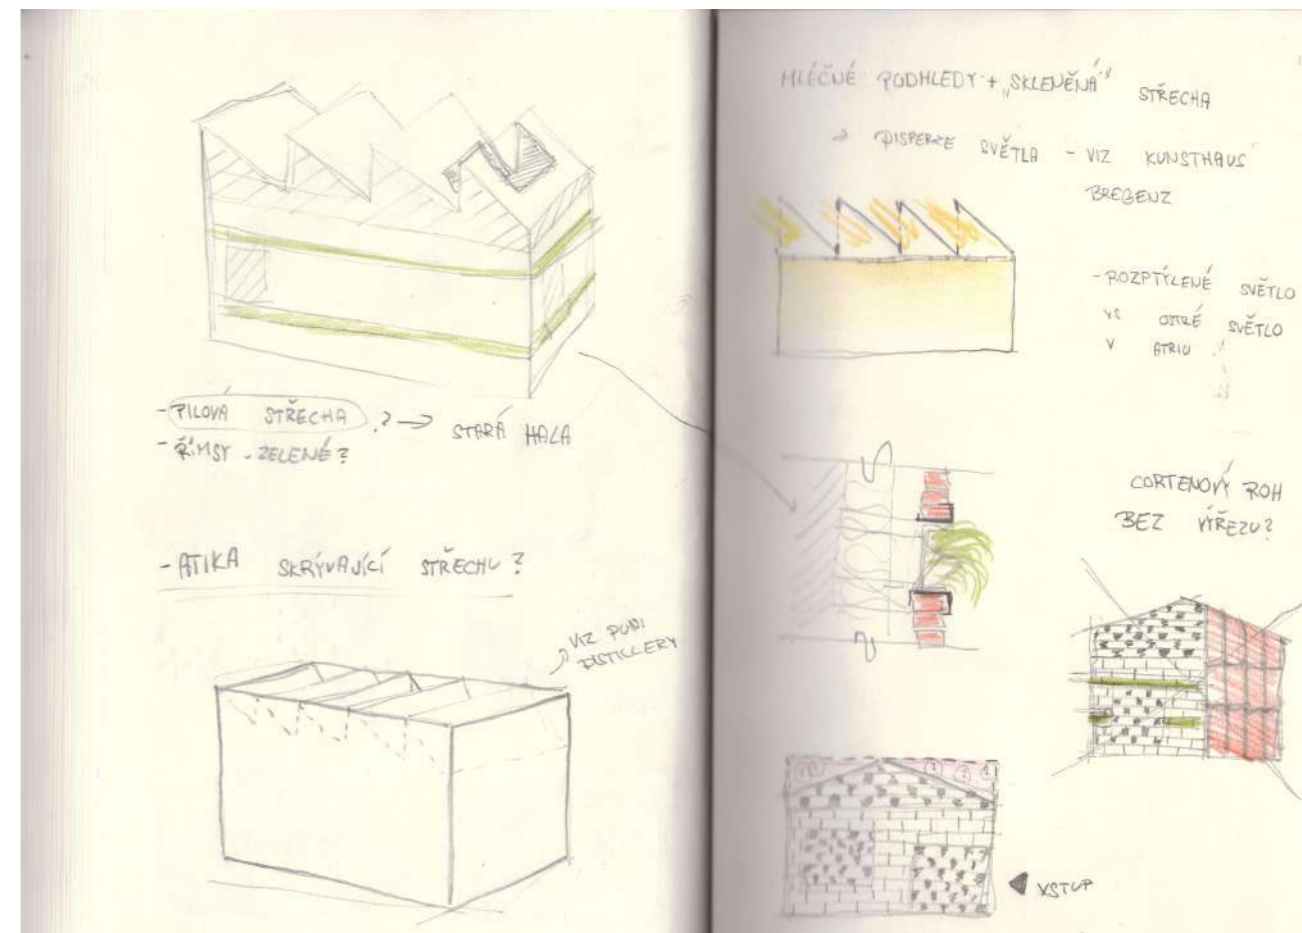 - PILOVÁ STŘECHA ? → STARÁ HALA
- ŘÍMSY . ZELENÉ ?
- ATIKA SKRÝVAJÍCÍ STŘECHU ?
VIZ PUNI
DISTILLERY
MLÉČNÉ PODHLEDY + „SKLENĚNÁ" STŘECHA
→ DISPERZE SVĚTLA - VIZ KUNSTHAUS
BREGENZ
- ROZPTÝLENÉ SVĚTLO
VS OSTRÉ SVĚTLO
V ATRIU
CORTENOVÝ ROH
BEZ VÝŘEZU?
? ? ?
VSTUP